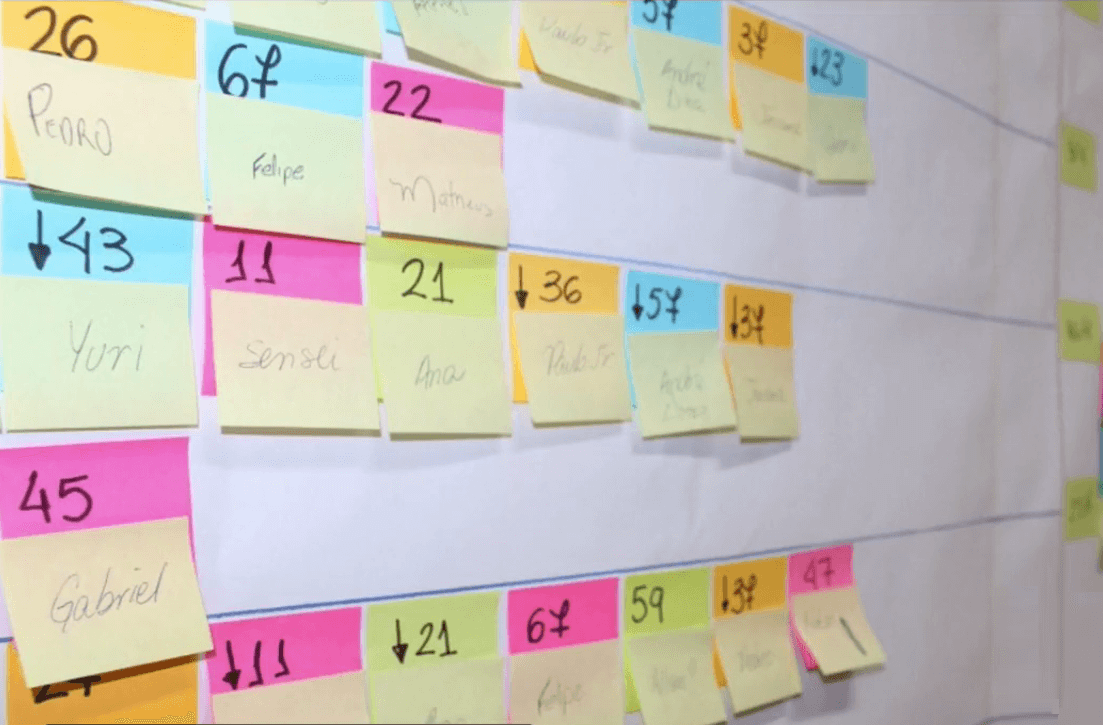 26
PEDRO
67
Felipe
22
Matheus
Paulo Jr
57
André
Lima
37
↓23
↓43
Yuri
11
Sensei
21
Ana
↓36
Paulo Jr
↓57
↓37
45
Gabriel
↓11
↓21
67
Felipe
59
↓37
47